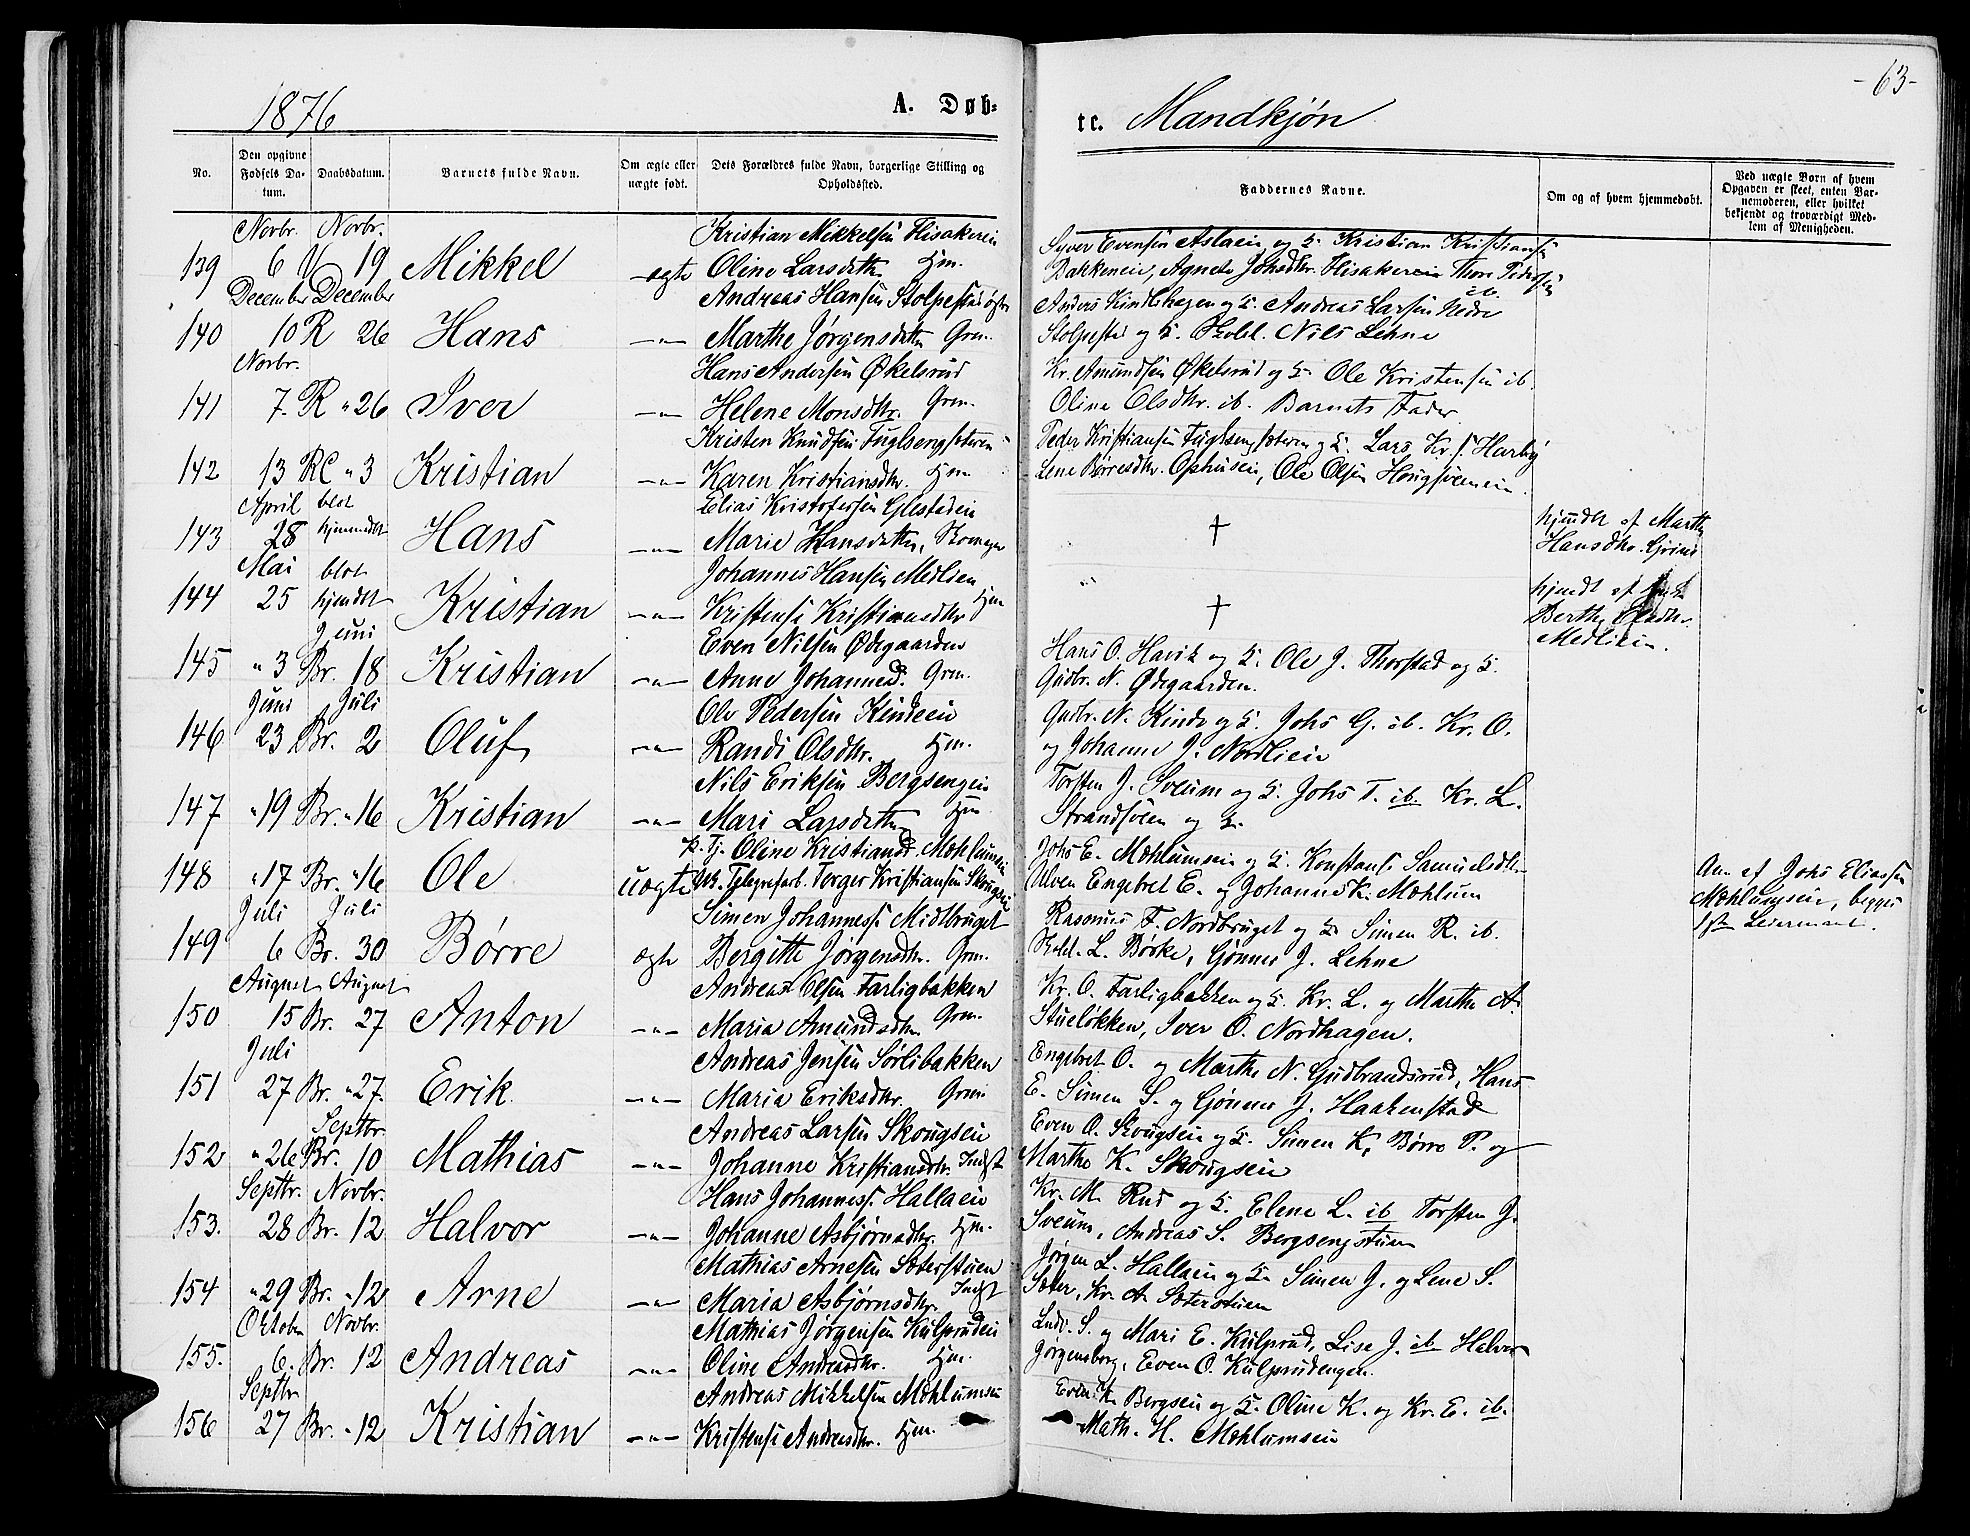 1876
A. Døb-
No.
Den opgivne Fødsels Datum.
Daabsdatum.
Barnets fulde Navn.
Om ægte eller uægte født.
Dets Forældres fulde Navn, borgerlige Stilling og Opholdssted.
Novbr. Novbr. Kristian Mikkelsen Hisakereie
139 6 V 19 Mikkel ægte Oline Larsdtr. Hjm.
December December Andreas Hansen Stolpestad
140 10 R 26 Hans -"- Marthe Jørgensdatter Grm.
Novbr. Hans Andersen Økelsrud
141 7. R "26 Iver -"- Helene Monsdtr. Grm.
Kristen Knudsen Fuglsengsæteren
142 13 RC "3 Kristian -"- Karen Kristiansdtr. Hjm
April blot Elias Kristofersen Glestadeie
143 28 hjemmedøbt Hans -"- Marie Hansdatter, Skomager
Mai blot Johannes Hansen Medlien
144 25 hjemdøbt Kristian -"- Kristense Kristiansdtr Hjm
Juni Even Nilsen Ødegaarden
145 "3 Br. 18 Kristian -"- Anne Johannesd. Grm.
Juni Juli Ole Pedersen Kindeeie
146 23 Br. 2 Oluf -"- Randi Olsdtr. Hjm.
Nils Eriksen Bergsengeie
147 "19 Br. "16 Kristian -"- Mari Larsdatter Hjm
P. Tj. Oline Kristiansd. Mæhlumseie
148 "17 Br. "16 Ole uægte Uk. Telegrafarb. Torger Kristiansen Skougseie
Juli Juli Simen Johanness. Midbruget
149 6 Br. 30 Børre ægte Bergitte Jørgensdtr. Grm.
August August Andreas Olsen Farligbakken
150 15 Br. 27 Anton -"- Maria Amundsdtr. Grm.
Juli Andreas Jensen Sørlibakken
151 27 Br. "27. Erik -"- Maria Eriksdtr. Grm
Septbr. Andreas Larsen Skougseie
152 "26 Br. 10 Mathias -"- Johanne Kristiansdtr. Indst
Septbr. Novbr. Hans Johanness. Hallaeie
153. 28 Br. 12 Halvor -"- Johanne Asbjørnsdtr. Hjm.
Mathias Arnesen Sæterstuen
154 "29 Br. "12 Arne -"- Maria Asbjørnsdtr. Indst
Oktober Novbr. Mathias Jørgensen Kulprudeie
155. 6. Br. 12 Andreas -"- Oline Andersdtr. Hjm.
Septbr Andreas Mikkelsen Mæhlumseie
156 27 Br. "12 Kristian -"- Kristense Andersdtr. Hjm.
-63-
te. Mandkjøn
Faddernes Navne.
Om og af hvem hjemmedøbt.
Ved uægte Børn af hvem Opgaven er skeet, enten Barnemoderen, eller hvilket bekjendt og troværdigt Medlem af Menigheden.
Syver Evensen Aslaeie og K. Kristian Kristiansen
Bakkeneie, Agnete Johsdtr. Hisakereie Thore Pedersen
ib.
Anders Kindlehagen og K. Andreas Larsen Nedre
Stolpestad og K. Skolel. Nils Lehne
Kr. Amundsen Økelsrud og K. Ole Kristensen ib.
Oline Olsdtr. ib. Barnets Fader
Peder Kristiansen Fuglsengsæteren og K. Lars Kr.s. Harby
Lene Børresdtr. Ophuseie, Ole Olsen Hougsveeneie.
† hjemdbt af Marthe
Hansdtr. Grinie
† hjemdt af
Berthe Olsdtr.
Medlieie.
Hans O. Havik og K. Ole J. Thorstad og K.
Gudbr. N. Ødegaarden.
Gudbr. N. Kinde og K. Johs G. ib. Kr. O.
og Johanne J. Nordlieie
Torsten J. Sveum og K. Johs T. ib. Kr. L.
Strandsveen og K.
Johs E. Mæhlumseie og K. Konstanse Samuelsdtr
Ulven Engebret E. og Johannes K. Mæhlum
Anm af Johs Eliassen
Mæhlumseie, begges
1ste Leiermaal.
Rasmus F. Nordbruget og K. Simen R. ib.
Skolel. L. Børke, Gønner J. Lehne
Kr. O. Farligbakken og K. Kr. L. og Marthe A.
Stueløkken, Iver O. Nordhagen.
Engebret O. og Marthe N. Gudbrandsrud, Hans
E. Simen S. og Gønner J. Haakenstad
Even O. Skougseie og K. Simen K, Børre P. og
Marthe K. Skougseie
Kr. M. Rud og K. Elene L. ib Torsten J.
Sveum, Andreas S. Bergsengstuen
Jørgen L. Hallaeie og K. Simen J. og Lene S.
Sæter, Kr. A. Sæterstuen
Ludv. S. og Mari E. Kulprud, Lise J. ib Halvor
Jørgensborg, Even O. Kulprudengen.
Even K. Bergseie og K. Oline K. og Kr. E. ib.
Math. H. Mæhlumseie